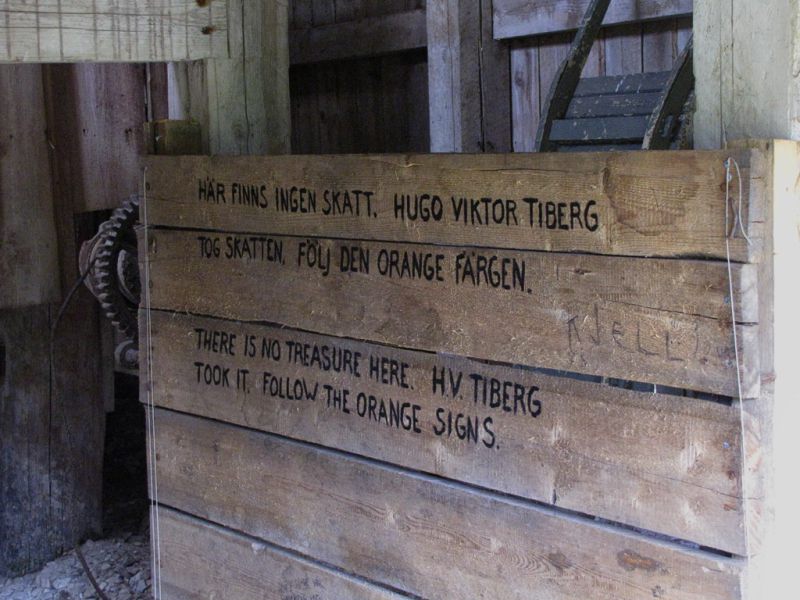 HÄR FINNS INGEN SKATT. HUGO VIKTOR TIBERG
TOG SKATTEN. FÖLJ DEN ORANGE FÄRGEN.
KJELL
THERE IS NO TREASURE HERE. H.V. TIBERG
TOOK IT. FOLLOW THE ORANGE SIGNS.